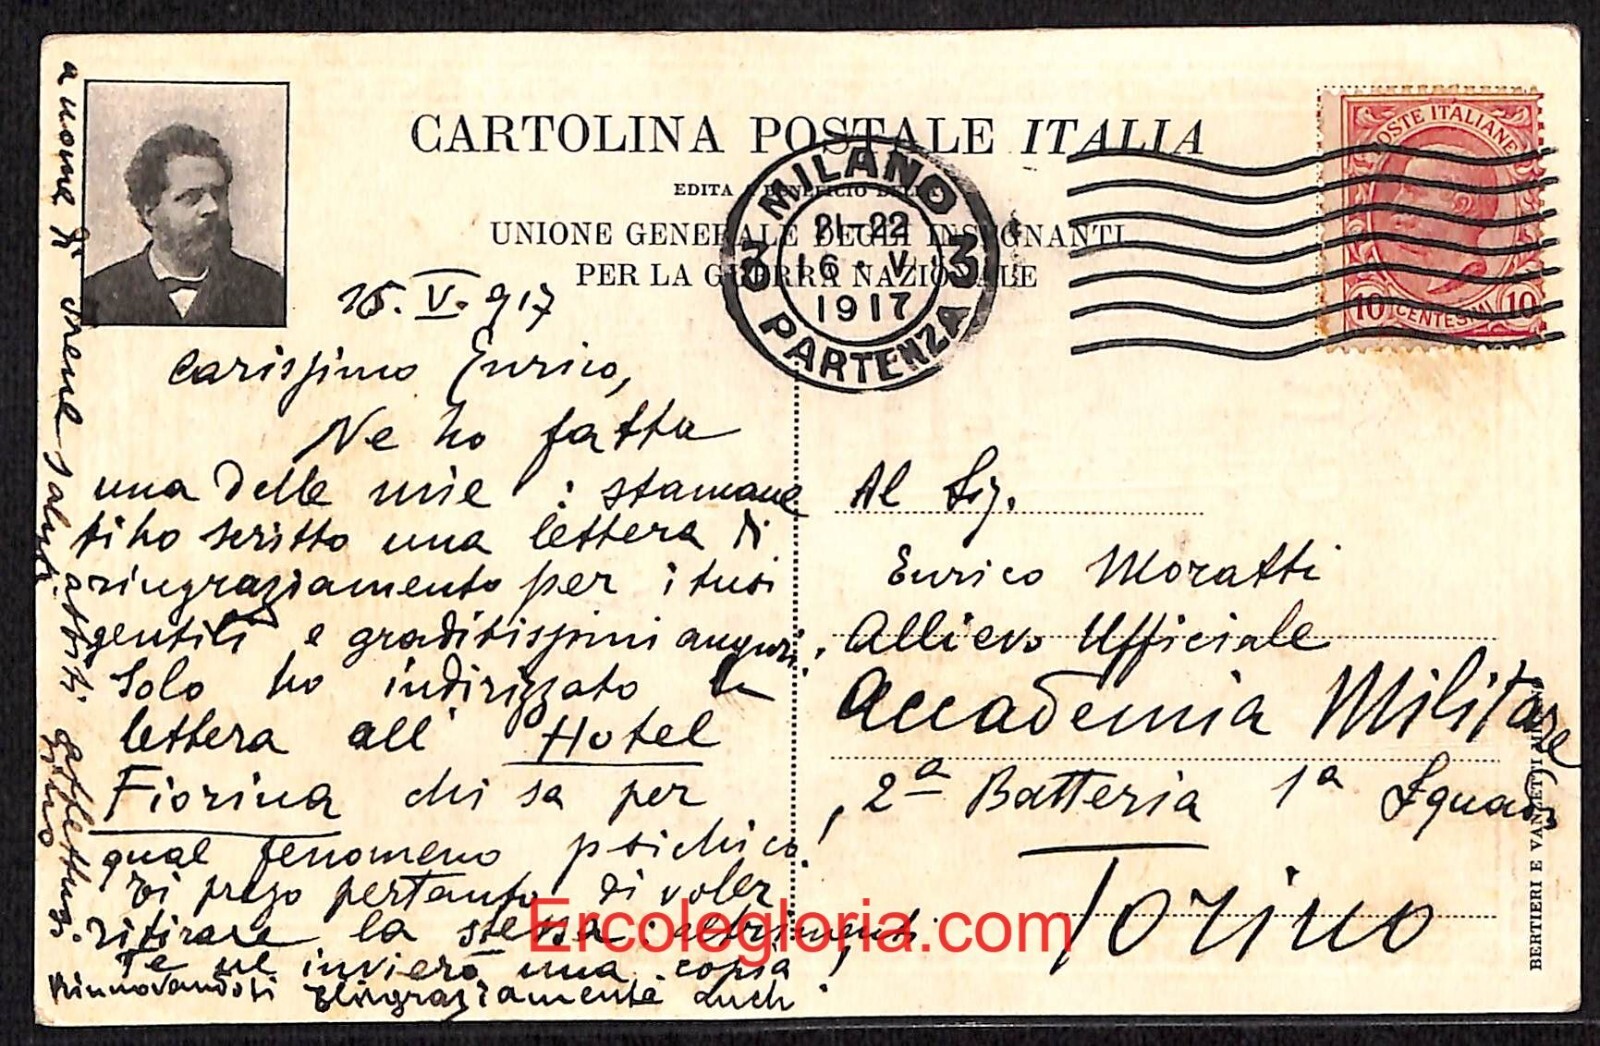 CARTOLINA POSTALE ITALIA
EDITA A BENEFICIO DELLA
UNIONE GENERALE DEGLI INSEGNANTI
PER LA GUERRA NAZIONALE
MILANO
21-22
3 16 · V 3
1917
PARTENZA
POSTE ITALIANE
10 CENTESIMI 10
16. V. 917
Carissimo Enrico,
Ne ho fatta
una delle mie : stamane
ti ho scritto una lettera di
ringraziamento per i tuoi
gentili e graditissimi auguri.
Solo ho indirizzato la
lettera all' Hotel
Fiorina chi sa per
qual fenomeno psichico!
Ti prego pertanto di voler
ritirare la stessa : altrimenti
Te ne invierò una copia!
Rinnovandoti ringraziamenti anch
a nome di Irene saluti affettuosi
Gino
Al Sig.
Enrico Moratti
Allievo Ufficiale
Accademia Militare
2a Batteria 1a Squadra
Torino
BERTIERI E VANZETTI MILANO
Ercolegloria.com